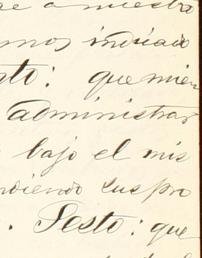 e a nuestro
mos indicado
sto: que mien
administrar
bajo el mis
ndiendo sus pro
. Sesto: que